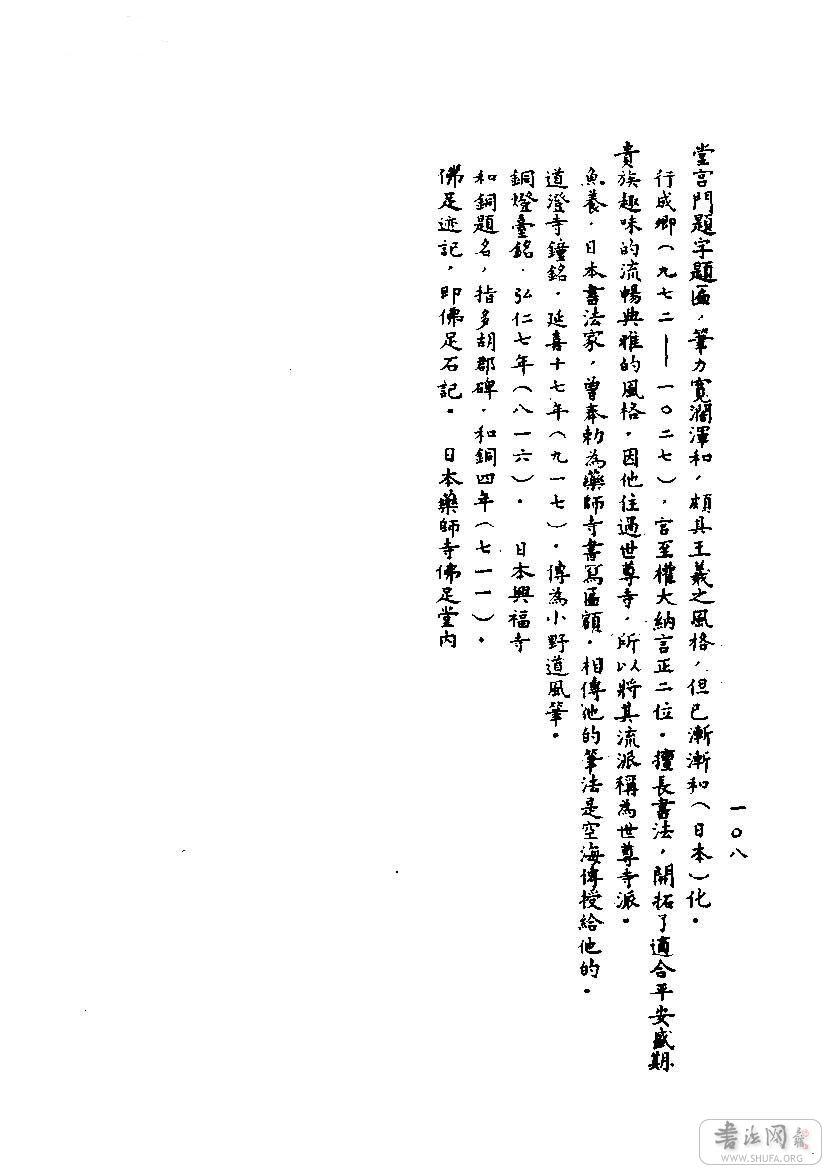 一〇八
堂宫門題字題匾，筆力寬濶渾和，頗具王羲之風格，但已漸漸和（日本）化。
行成卿（九七二——一〇二七），官至權大納言正二位。擅長書法，開拓了適合平安盛期
貴族趣味的流暢典雅的風格，因他住過世尊寺，所以將其流派稱為世尊寺派。
魚養，日本書法家，曾奉勅為藥師寺書寫匾額，相傳他的筆法是空海傳授給他的。
道澄寺鐘銘，延喜十七年（九一七），傳為小野道風筆。
銅燈臺銘，弘仁七年（八一六）。 日本興福寺
和銅題名，指多胡郡碑，和銅四年（七一一）。
佛足迹記，即佛足石記。 日本藥師寺佛足堂内
書法网
WWW.SHUFA.ORG